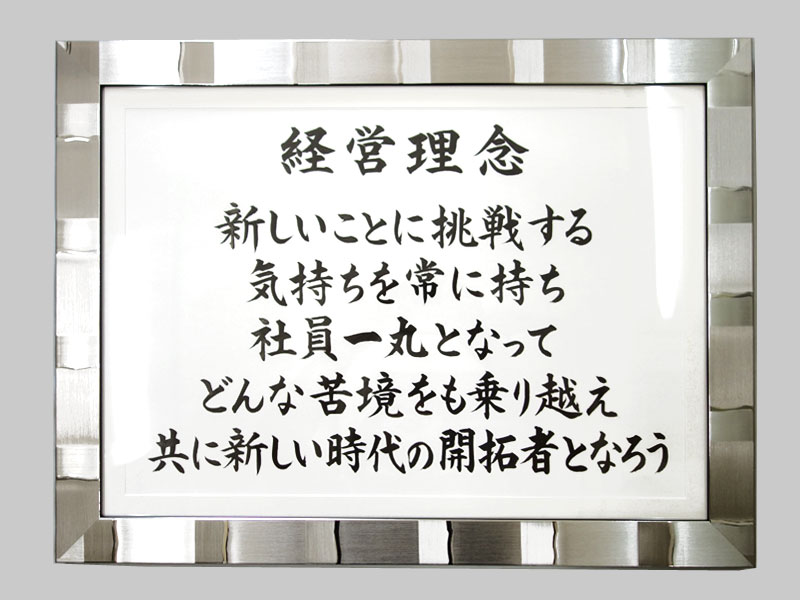 経営理念
新しいことに挑戦する
気持ちを常に持ち
社員一丸となって
どんな苦境をも乗り越え
共に新しい時代の開拓者となろう